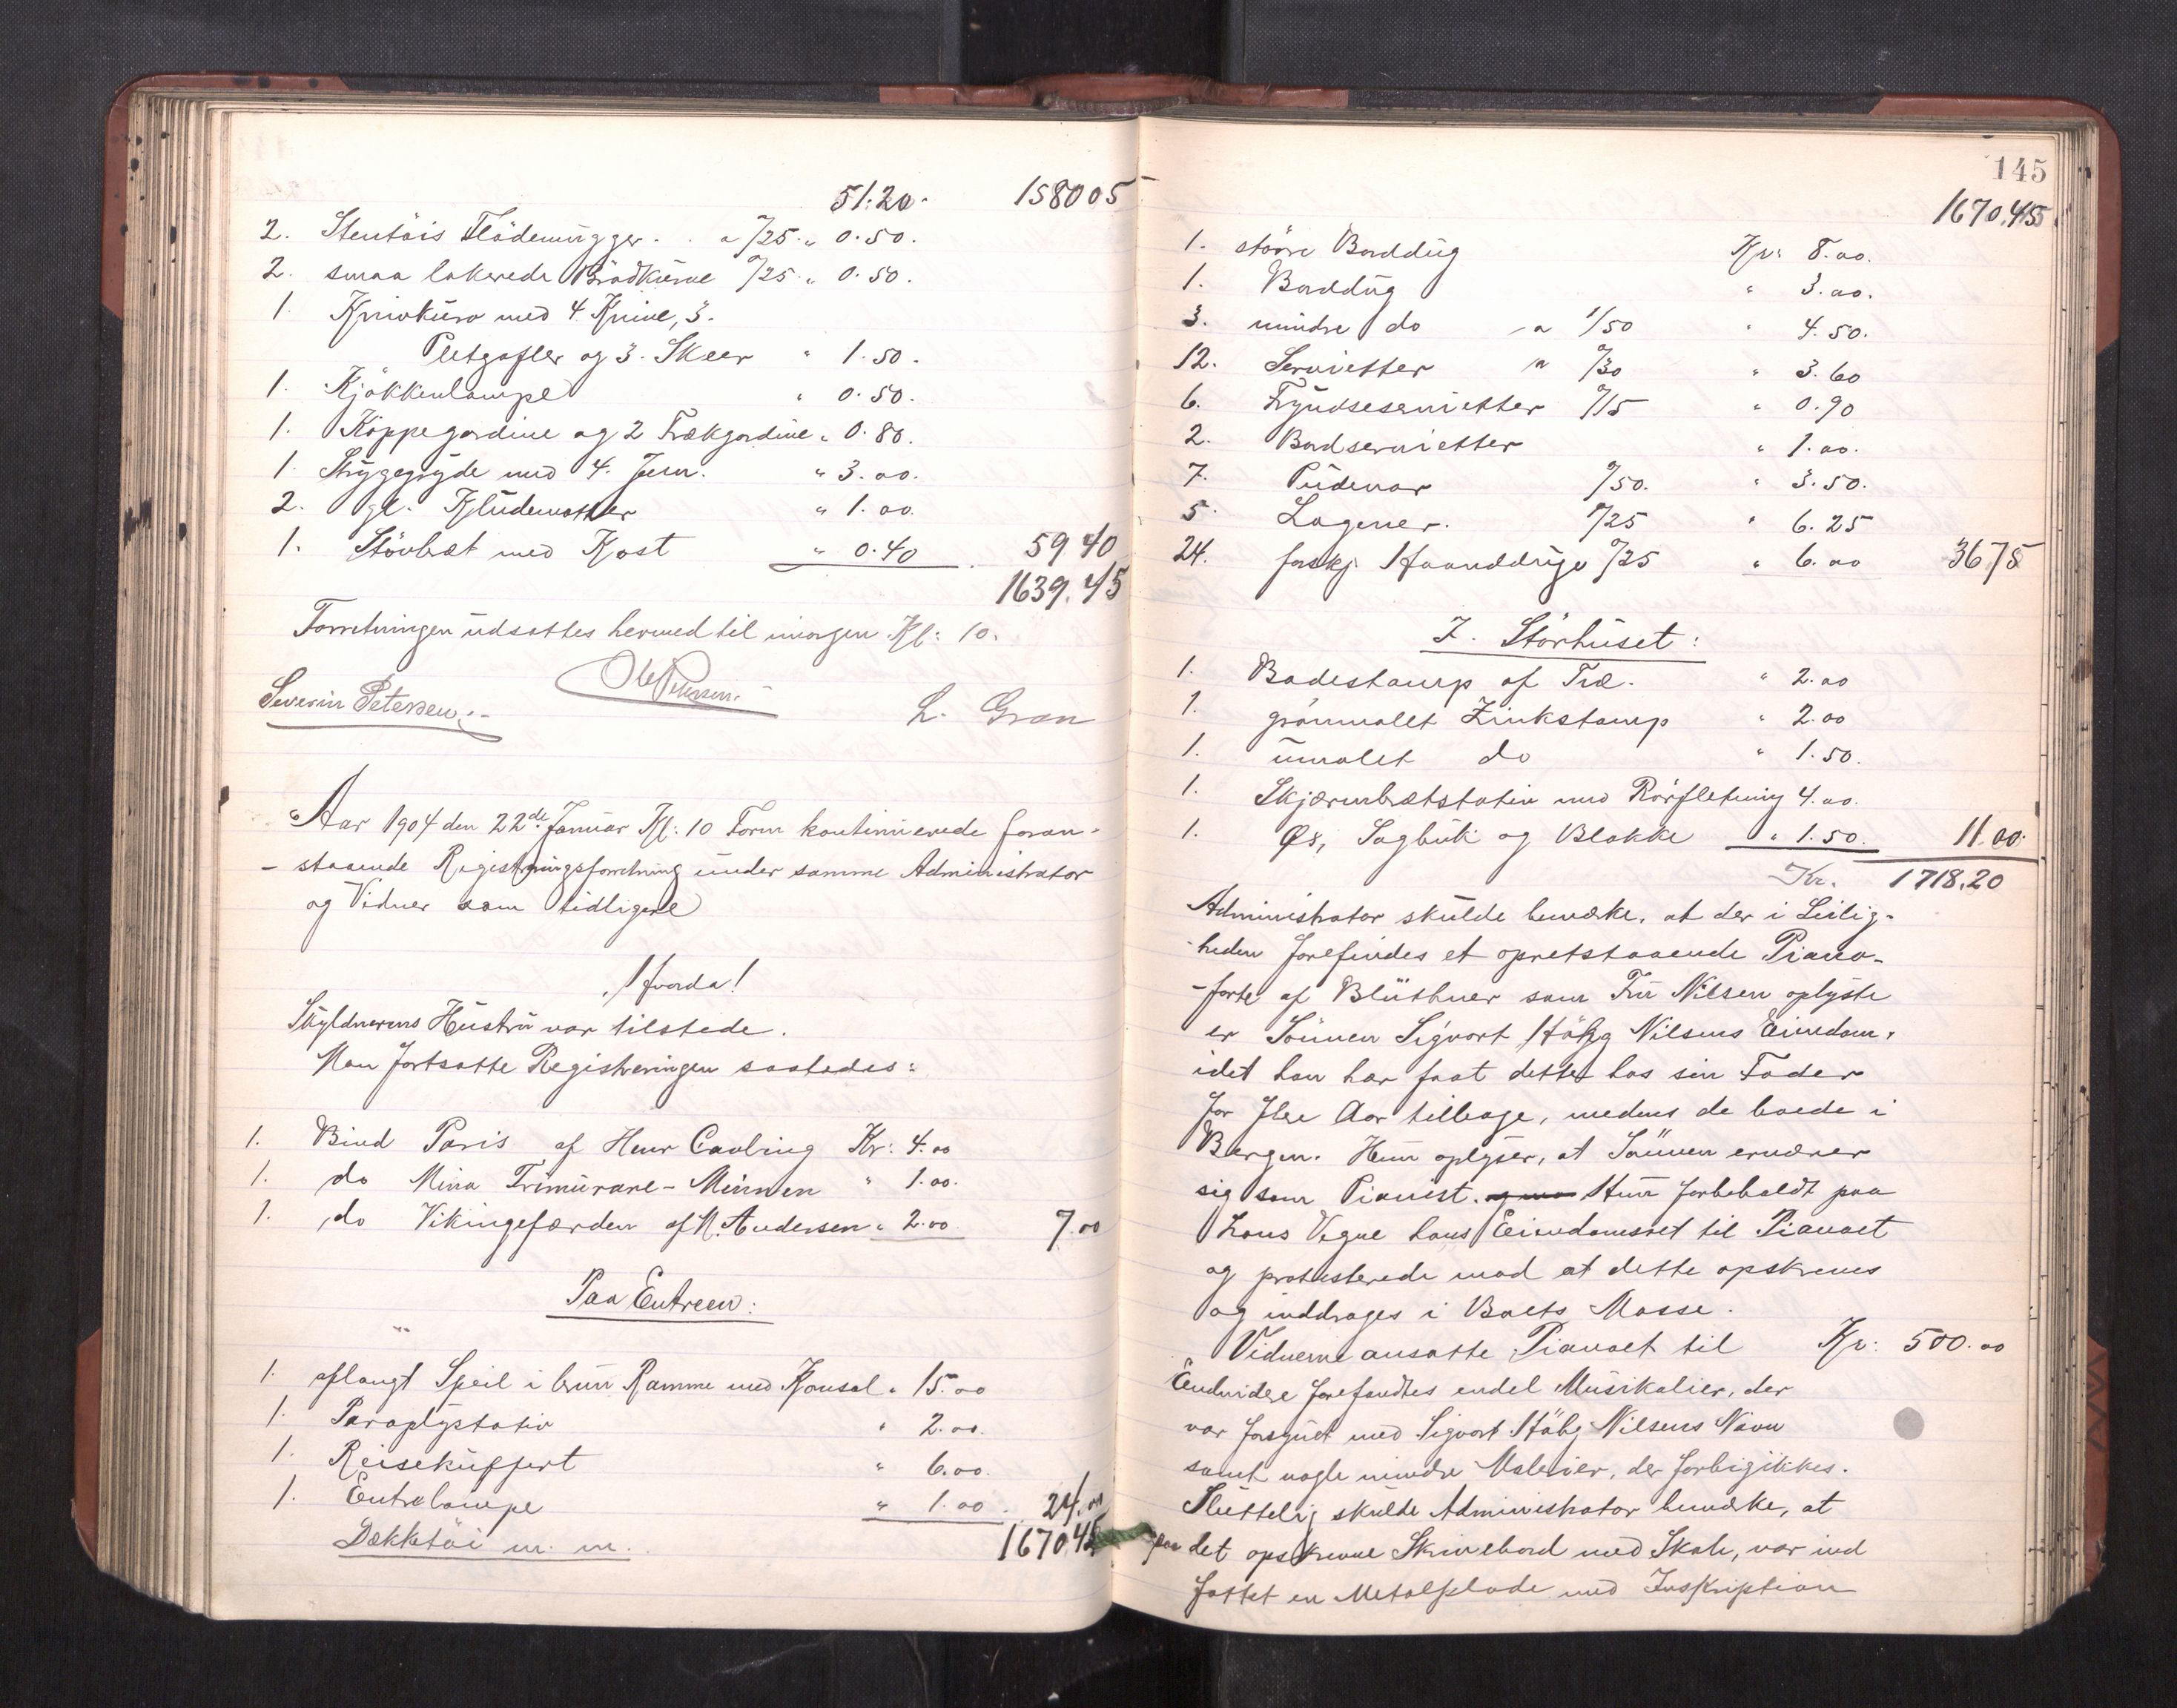 51.20. 158005
2. Stentöis Flödemugger. a %25 " 0.50.
2. smaa lakerede Brödkurve %25 " 0.50.
1. Knivkurv med 4 Knive, 3.
Pletgafler og 3. Skeer " 1.50.
1. Kjökkenlampe " 0.50.
1. Kappegardine og 2 Trækgardine " 0.80.
1. Strygegryde med 4. Jern. " 3.00.
2. gl. Kludematter " 1.00.
1. Stövbræt med Kost " 0.40 59 40
1639.45
Forretningen udsattes hermed til imorgen Kl: 10.
Severin Petersen. Ole Petersen. L. Gran
Aar 1904 den 22de Januar Kl: 10 Form kontinuerede foran-
-staaende Registreringsforretning under samme Administrator
og Vidner som tidligere
Hvorda!
Skyldnerens Hustru var tilstede.
Man fortsatte Registreringen saaledes:
1. Bind Paris af Henr Cavling Kr: 4.00
1. do Mina Frimurare-Minnen " 1.00.
1. do Vikingefærden af M. Andersen " 2.00. 7.00
Paa Entreen:
1. aflangt Speil i brun Ramme med Konsol " 15.00
1. Paraplystativ " 2.00.
1. Reisekuffert " 6.00.
1. Entrelampe " 1.00. 24.00
Dækketöi m. m. 1670.45
145
1670.45
1. större Borddug Kr: 8.00.
1. Borddug " 3.00.
3. mindre do a 1/50 " 4.50.
12. Servietter a %30 " 3.60
6. Frynseservietter %15 " 0.90
2. Bordservietter " 1.00.
7. Pudevar %50. " 3.50.
5. Lagener. 1/25 " 6.25
24. forskj. Haanddugs %25 " 6.00 36.75
I. Störhuset:
1. Badestamp af Træ. " 2.00
1. grönmalet Zinkstamp " 2.00
1. umalet do " 1.50.
1. Skjærmbrætstativ med Rörfletning 4.00.
1. Øx, Sagbuk og Blokke " 1.50. 11.00
Kr. 1718.20
Administrator skulde bemærke, at der i Leilig-
-heden forefindes et opretstaaende Piano-
-forte af Blüthner som Fru Nilsen oplyste
er Sönnen Sigvart Höeg Nilsens Eiendom,
idet han har faat dette hos sin Fader
for flere Aar tilbage, medens de boede i
Bergen. Hun oplyser, at Sönnen ernærer
sig som Pianist. Hun forbeholdt paa
hans Vegne hans Eiendomsret til Pianoet
og protesterede mod at dette opskreves
og inddrages i Boets Masse.
Vidnerne ansatte Pianoet til Kr: 500.00
Endvidere forefandtes endel Musikalier, der
var forsynet med Sigvart Höeg Nilsens Navn
samt nogle mindre Malerier, der forbigikkes.
Sluttelig skulde Administrator bemærke, at
paa det opskrevne Skrivebord med Skab, var ind
fattet en Metalplade med Inskription